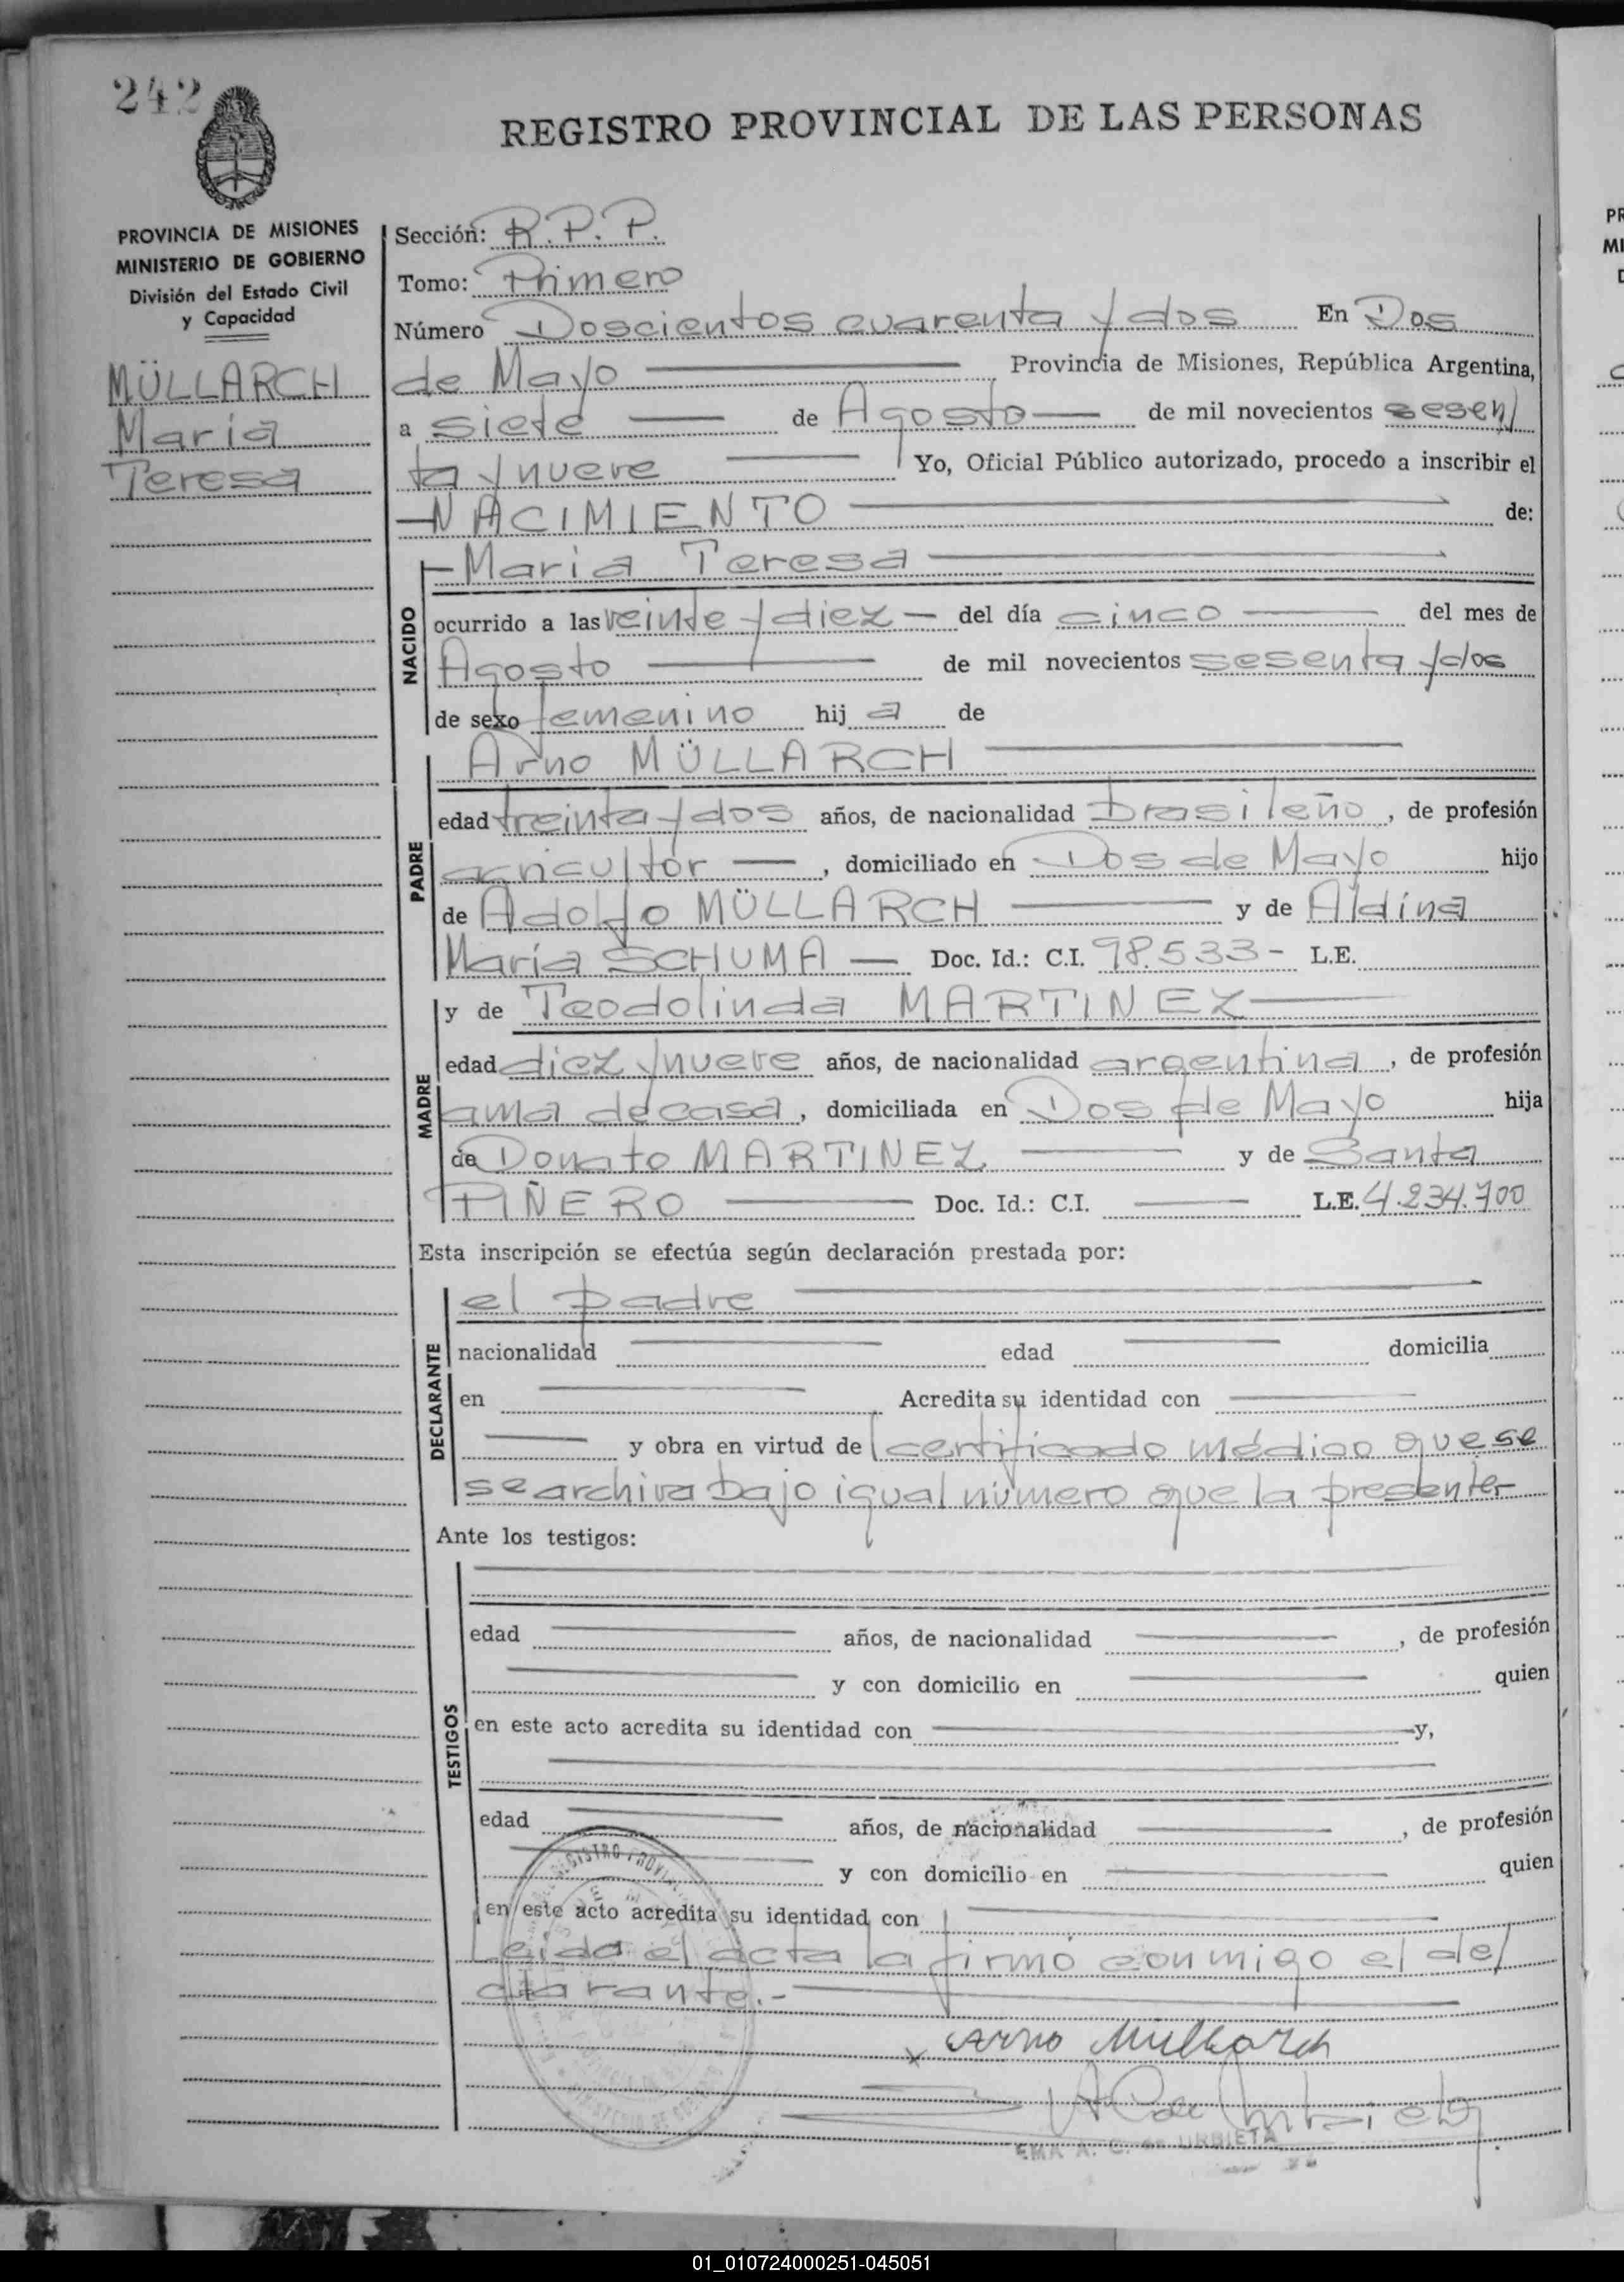 242
REGISTRO PROVINCIAL DE LAS PERSONAS
PROVINCIA DE MISIONES
MINISTERIO DE GOBIERNO
División del Estado Civil
y Capacidad
MÜLLARCH
María
Teresa
Sección: R.P.P.
Tomo: Primero
Número Doscientos cuarenta y dos En Dos
de Mayo Provincia de Misiones, República Argentina,
a siete de Agosto de mil novecientos sesen/
ta y nueve Yo, Oficial Público autorizado, procedo a inscribir el
NACIMIENTO de:
NACIDO
María Teresa
ocurrido a las veinte y diez del día cinco del mes de
Agosto de mil novecientos sesenta y dos
de sexo femenino hij a de
PADRE
Arno MÜLLARCH
edad treinta y dos años, de nacionalidad brasileño, de profesión
agricultor, domiciliado en Dos de Mayo hijo
de Adolfo MÜLLARCH y de Aldina
María SCHUMA Doc. Id.: C.I. 98.533- L.E.
MADRE
y de Teodolinda MARTINEZ
edad diez y nueve años, de nacionalidad argentina, de profesión
ama de casa, domiciliada en Dos de Mayo hija
de Donato MARTINEZ y de Santa
PIÑERO Doc. Id.: C.I. L.E. 4.234.700
Esta inscripción se efectúa según declaración prestada por:
DECLARANTE
el padre
nacionalidad edad domicilia
en Acredita su identidad con
y obra en virtud de certificado médico que se
se archiva bajo igual número que la presente.-
Ante los testigos:
TESTIGOS
edad años, de nacionalidad, de profesión
y con domicilio en quien
en este acto acredita su identidad con y,
edad años, de nacionalidad, de profesión
y con domicilio en quien
en este acto acredita su identidad con
Leída el acta la firmó conmigo el de/
clarante.-
x Arno Müllarch
EMA A. C. de URBIETA
01_010724000251-045051